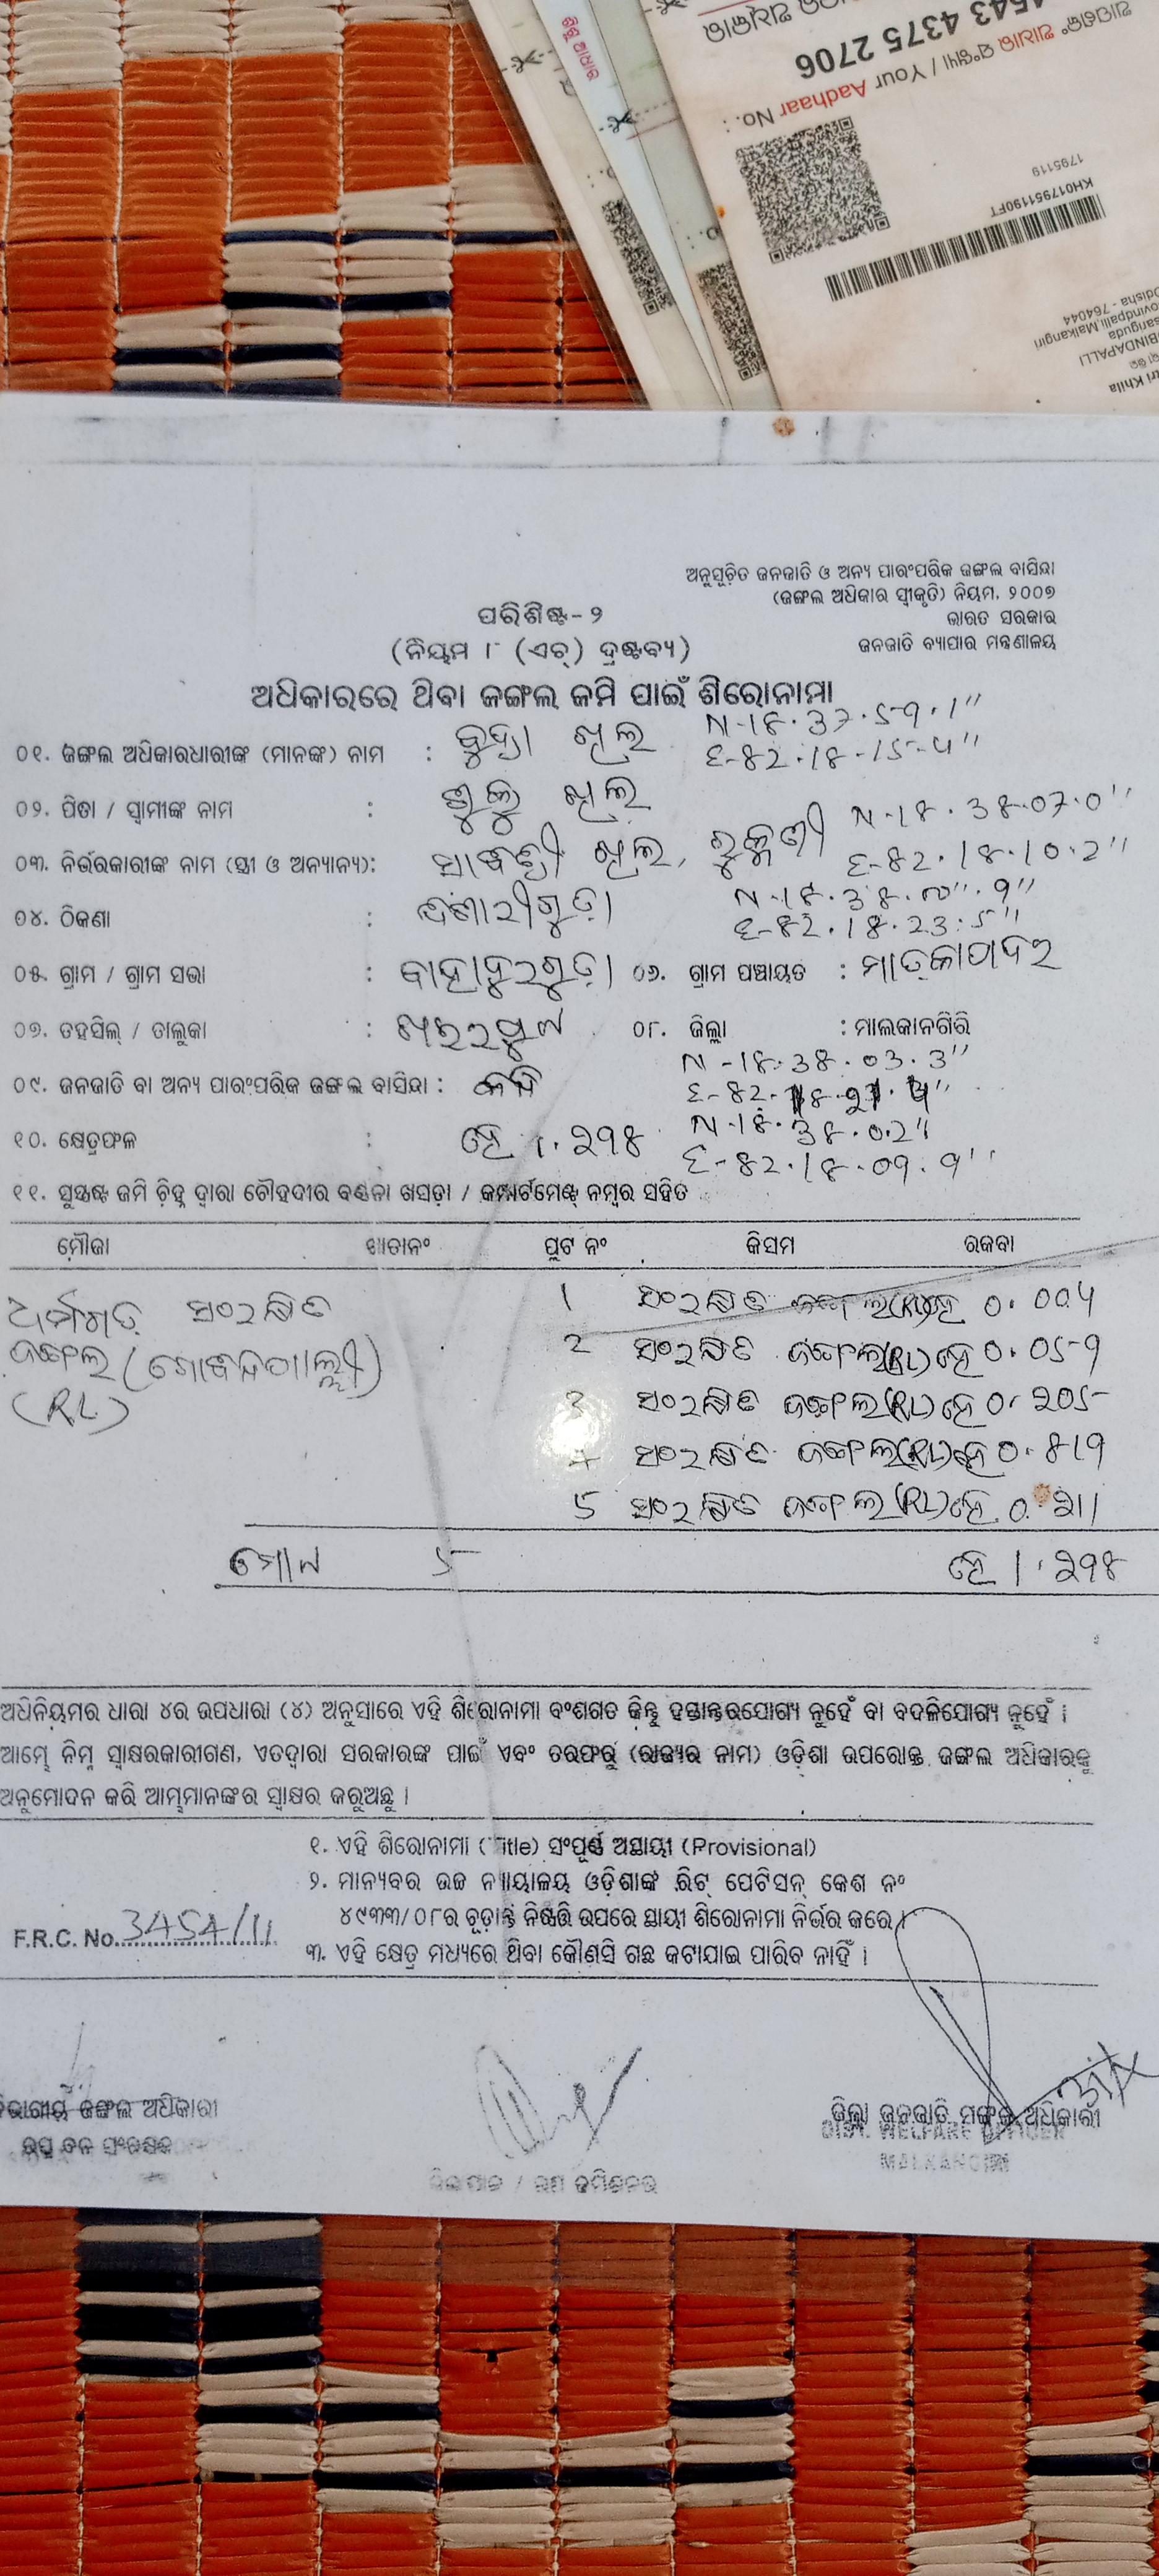 4543 4375 2706
ଆପଣଙ୍କ ଆଧାର ସଂଖ୍ୟା / Your Aadhaar No. :
1795119
KH017951190FT
Odisha - 764044
ଅନୁସୂଚିତ ଜନଜାତି ଓ ଅନ୍ୟ ପାରଂପରିକ ଜଙ୍ଗଲ ବାସିନ୍ଦା
(ଜଙ୍ଗଲ ଅଧିକାର ସ୍ୱୀକୃତି) ନିୟମ, ୨୦୦୭
ଭାରତ ସରକାର
ଜନଜାତି ବ୍ୟାପାର ମନ୍ତ୍ରଣାଳୟ
ପରିଶିଷ୍ଟ - ୨
(ନିୟମ ୮ (ଏଚ୍) ଦ୍ରଷ୍ଟବ୍ୟ)
ଅଧିକାରରେ ଥିବା ଜଙ୍ଗଲ ଜମି ପାଇଁ ଶିରୋନାମା
N-18.37.59.1"
୦୧. ଜଙ୍ଗଲ ଅଧିକାରଧାରୀଙ୍କ (ମାନଙ୍କ) ନାମ : ବୁଦ୍ରା ଖିଲ E-82.18-15-4"
୦୨. ପିତା / ସ୍ୱାମୀଙ୍କ ନାମ : ଖିଲ N-18.38.07.0"
୦୩. ନିର୍ଭରକାରୀଙ୍କ ନାମ (ସ୍ତ୍ରୀ ଓ ଅନ୍ୟାନ୍ୟ): ସାବିତ୍ରୀ ଖିଲ, ରୁକୁଣୀ E-82.18.10.2"
୦୪. ଠିକଣା :
E-82.18.23.5"
୦୫. ଗ୍ରାମ / ଗ୍ରାମ ସଭା : ବାହାଦୁରଗୁଡ଼ା ୦୬. ଗ୍ରାମ ପଞ୍ଚାୟତ : ମାଟ୍‌କାପାଦର
୦୭. ତହସିଲ୍ / ତାଲୁକା : ଖଇରପୁଟ ୦୮. ଜିଲ୍ଲା : ମାଲକାନଗିରି
N-18.38.03.3"
୦୯. ଜନଜାତି ବା ଅନ୍ୟ ପାରଂପରିକ ଜଙ୍ଗଲ ବାସିନ୍ଦା :
N-18.38.0.2"
୧୦. କ୍ଷେତ୍ରଫଳ : ହେ ୧.୨୯୫
E-82.18.09.9"
୧୧. ସୁସ୍ପଷ୍ଟ ଜମି ଚିହ୍ନ ଦ୍ୱାରା ଚୌହଦୀର ବର୍ଣ୍ଣନା ଖସଡ଼ା / କମ୍ପାର୍ଟମେଣ୍ଟ୍ ନମ୍ବର ସହିତ
ମୌଜା ଖାତାନଂ ପ୍ଲଟ ନଂ କିସମ ରକବା
ଧର୍ମଗଡ଼ ସଂରକ୍ଷିତ 1 ସଂରକ୍ଷିତ ଜଙ୍ଗଲ(RL)ହେ 0.004
ଜଙ୍ଗଲ (ଗୋବିନ୍ଦପାଲ୍ଲୀ) 2 ସଂରକ୍ଷିତ ଜଙ୍ଗଲ(RL)ହେ 0.059
(RL) 3 ସଂରକ୍ଷିତ ଜଙ୍ଗଲ(RL)ହେ 0.205
4 ସଂରକ୍ଷିତ ଜଙ୍ଗଲ(RL)ହେ 0.819
5 ସଂରକ୍ଷିତ ଜଙ୍ଗଲ(RL)ହେ 0.211
ମୋଟ 5 ହେ 1.298
ଅଧିନିୟମର ଧାରା ୪ର ଉପଧାରା (୪) ଅନୁସାରେ ଏହି ଶିରୋନାମା ବଂଶଗତ କିନ୍ତୁ ହସ୍ତାନ୍ତରଯୋଗ୍ୟ ନୁହେଁ ବା ବଦଳିଯୋଗ୍ୟ ନୁହେଁ ।
ଆମ୍ଭେ ନିମ୍ନ ସ୍ୱାକ୍ଷରକାରୀଗଣ, ଏତଦ୍ୱାରା ସରକାରଙ୍କ ପାଇଁ ଏବଂ ତରଫରୁ (ରାଜ୍ୟର ନାମ) ଓଡ଼ିଶା ଉପରୋକ୍ତ ଜଙ୍ଗଲ ଅଧିକାରକୁ
ଅନୁମୋଦନ କରି ଆମ୍ଭମାନଙ୍କର ସ୍ୱାକ୍ଷର କରୁଅଛୁ ।
୧. ଏହି ଶିରୋନାମା (Title) ସଂପୂର୍ଣ୍ଣ ଅସ୍ଥାୟୀ (Provisional)
୨. ମାନ୍ୟବର ଉଚ୍ଚ ନ୍ୟାୟାଳୟ ଓଡ଼ିଶାଙ୍କ ରିଟ୍ ପେଟିସନ୍ କେଶ ନଂ
୪୯୩୩/୦୮ର ଚୂଡ଼ାନ୍ତ ନିଷ୍ପତ୍ତି ଉପରେ ସ୍ଥାୟୀ ଶିରୋନାମା ନିର୍ଭର କରେ ।
F.R.C. No. 3454/11
୩. ଏହି କ୍ଷେତ୍ର ମଧ୍ୟରେ ଥିବା କୌଣସି ଗଛ କଟାଯାଇ ପାରିବ ନାହିଁ ।
ବିଭାଗୀୟ ଜଙ୍ଗଲ ଅଧିକାରୀ
ଜିଲ୍ଲା ଜନଜାତି ମଙ୍ଗଳ ଅଧିକାରୀ
DIST. WELFARE OFFICER
MALKANGIRI
ଜିଲ୍ଲାପାଳ /